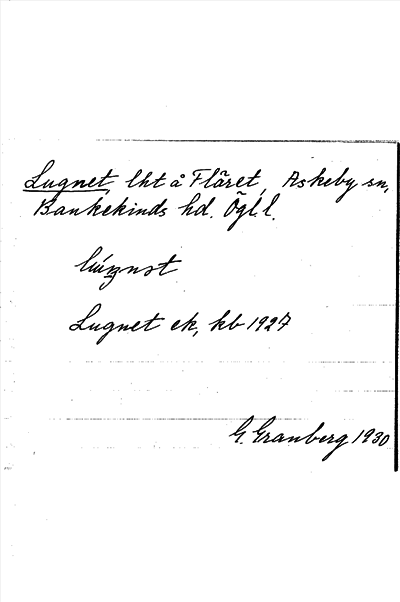 Lugnet, lht å Flåret, Askeby sn,
Bankekinds hd. Ögl. l.
Lugnet ek, kb 1927
G. Granberg 1930